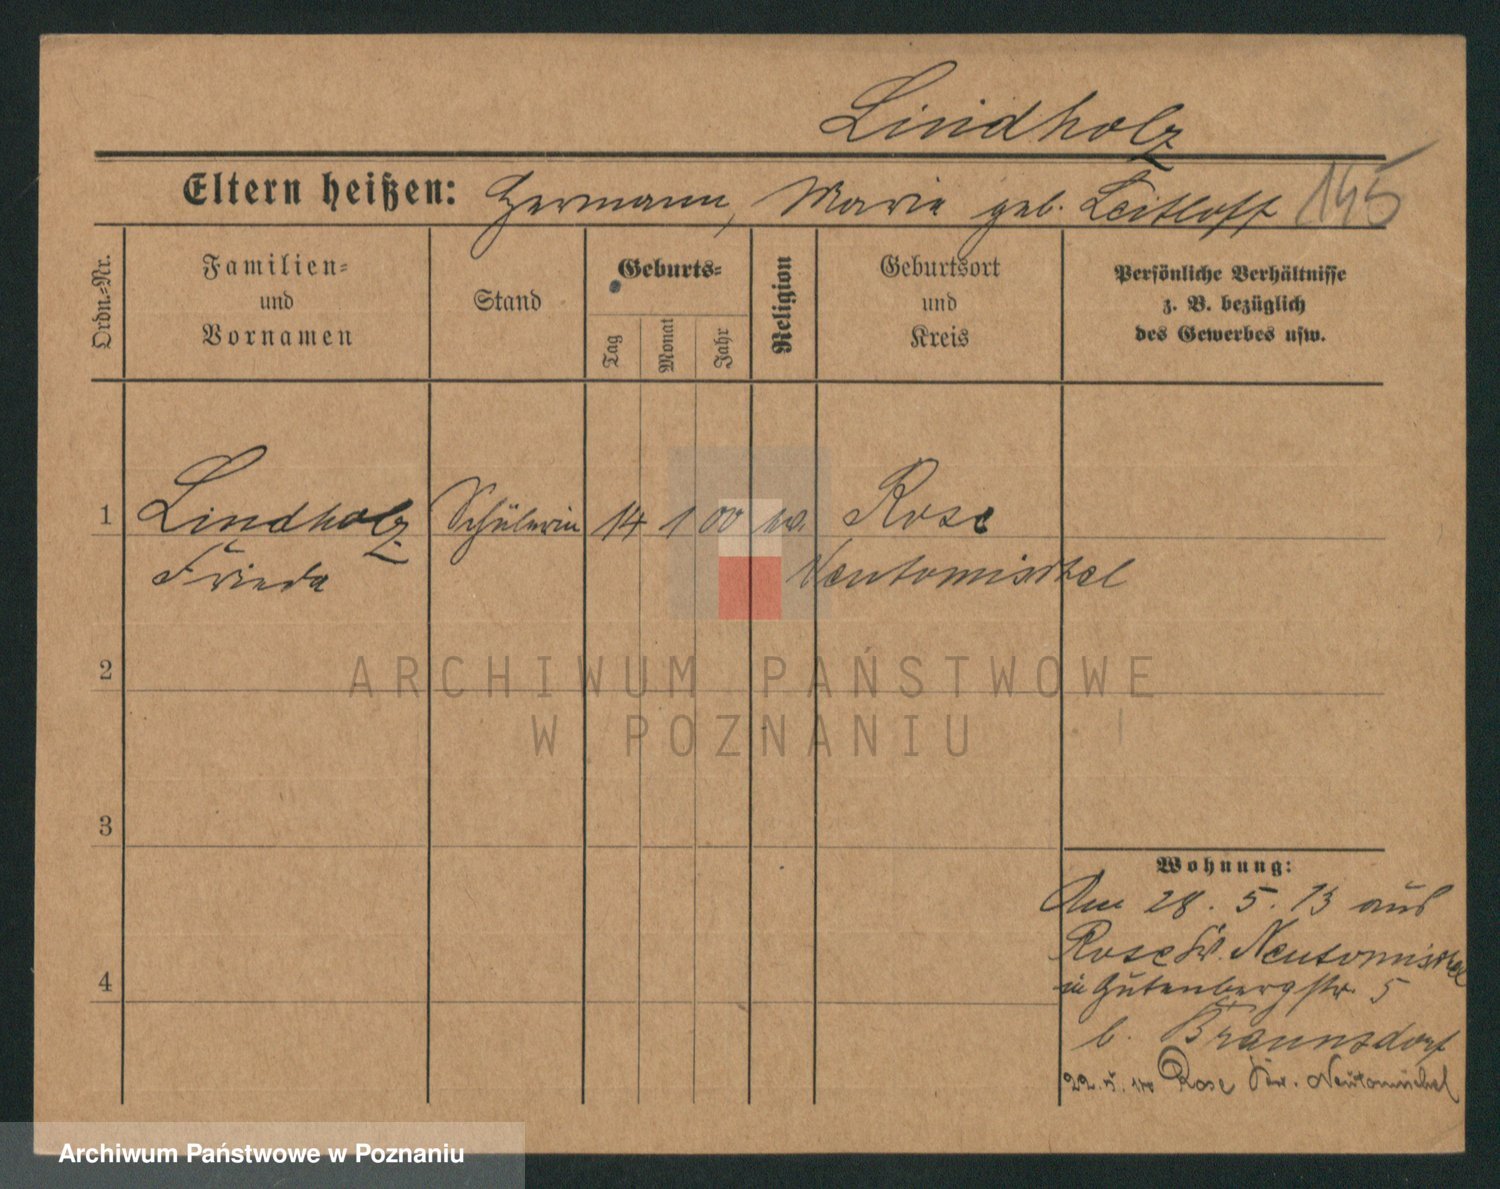 Lindholz
Eltern heißen: Hermann, Marie geb. Leitloff 145
Ordn.-Nr.
Familien-
und
Vornamen
Stand
Geburts-
Tag
Monat
Jahr
Religion
Geburtsort
und
Kreis
Persönliche Verhältnisse
z. B. bezüglich
des Gewerbes usw.
1 Lindholz Schülerin 14 1 00 ev. Rose
Frieda Neutomischel
2
3
4
Wohnung:
Am 28. 5. 13 aus
Rose Kr. Neutomischel
in Gutenbergstr. 5
b. Braunsdorf
Rose Kr. Neutomischel
ARCHIWUM PAŃSTWOWE
W POZNANIU
Archiwum Państwowe w Poznaniu